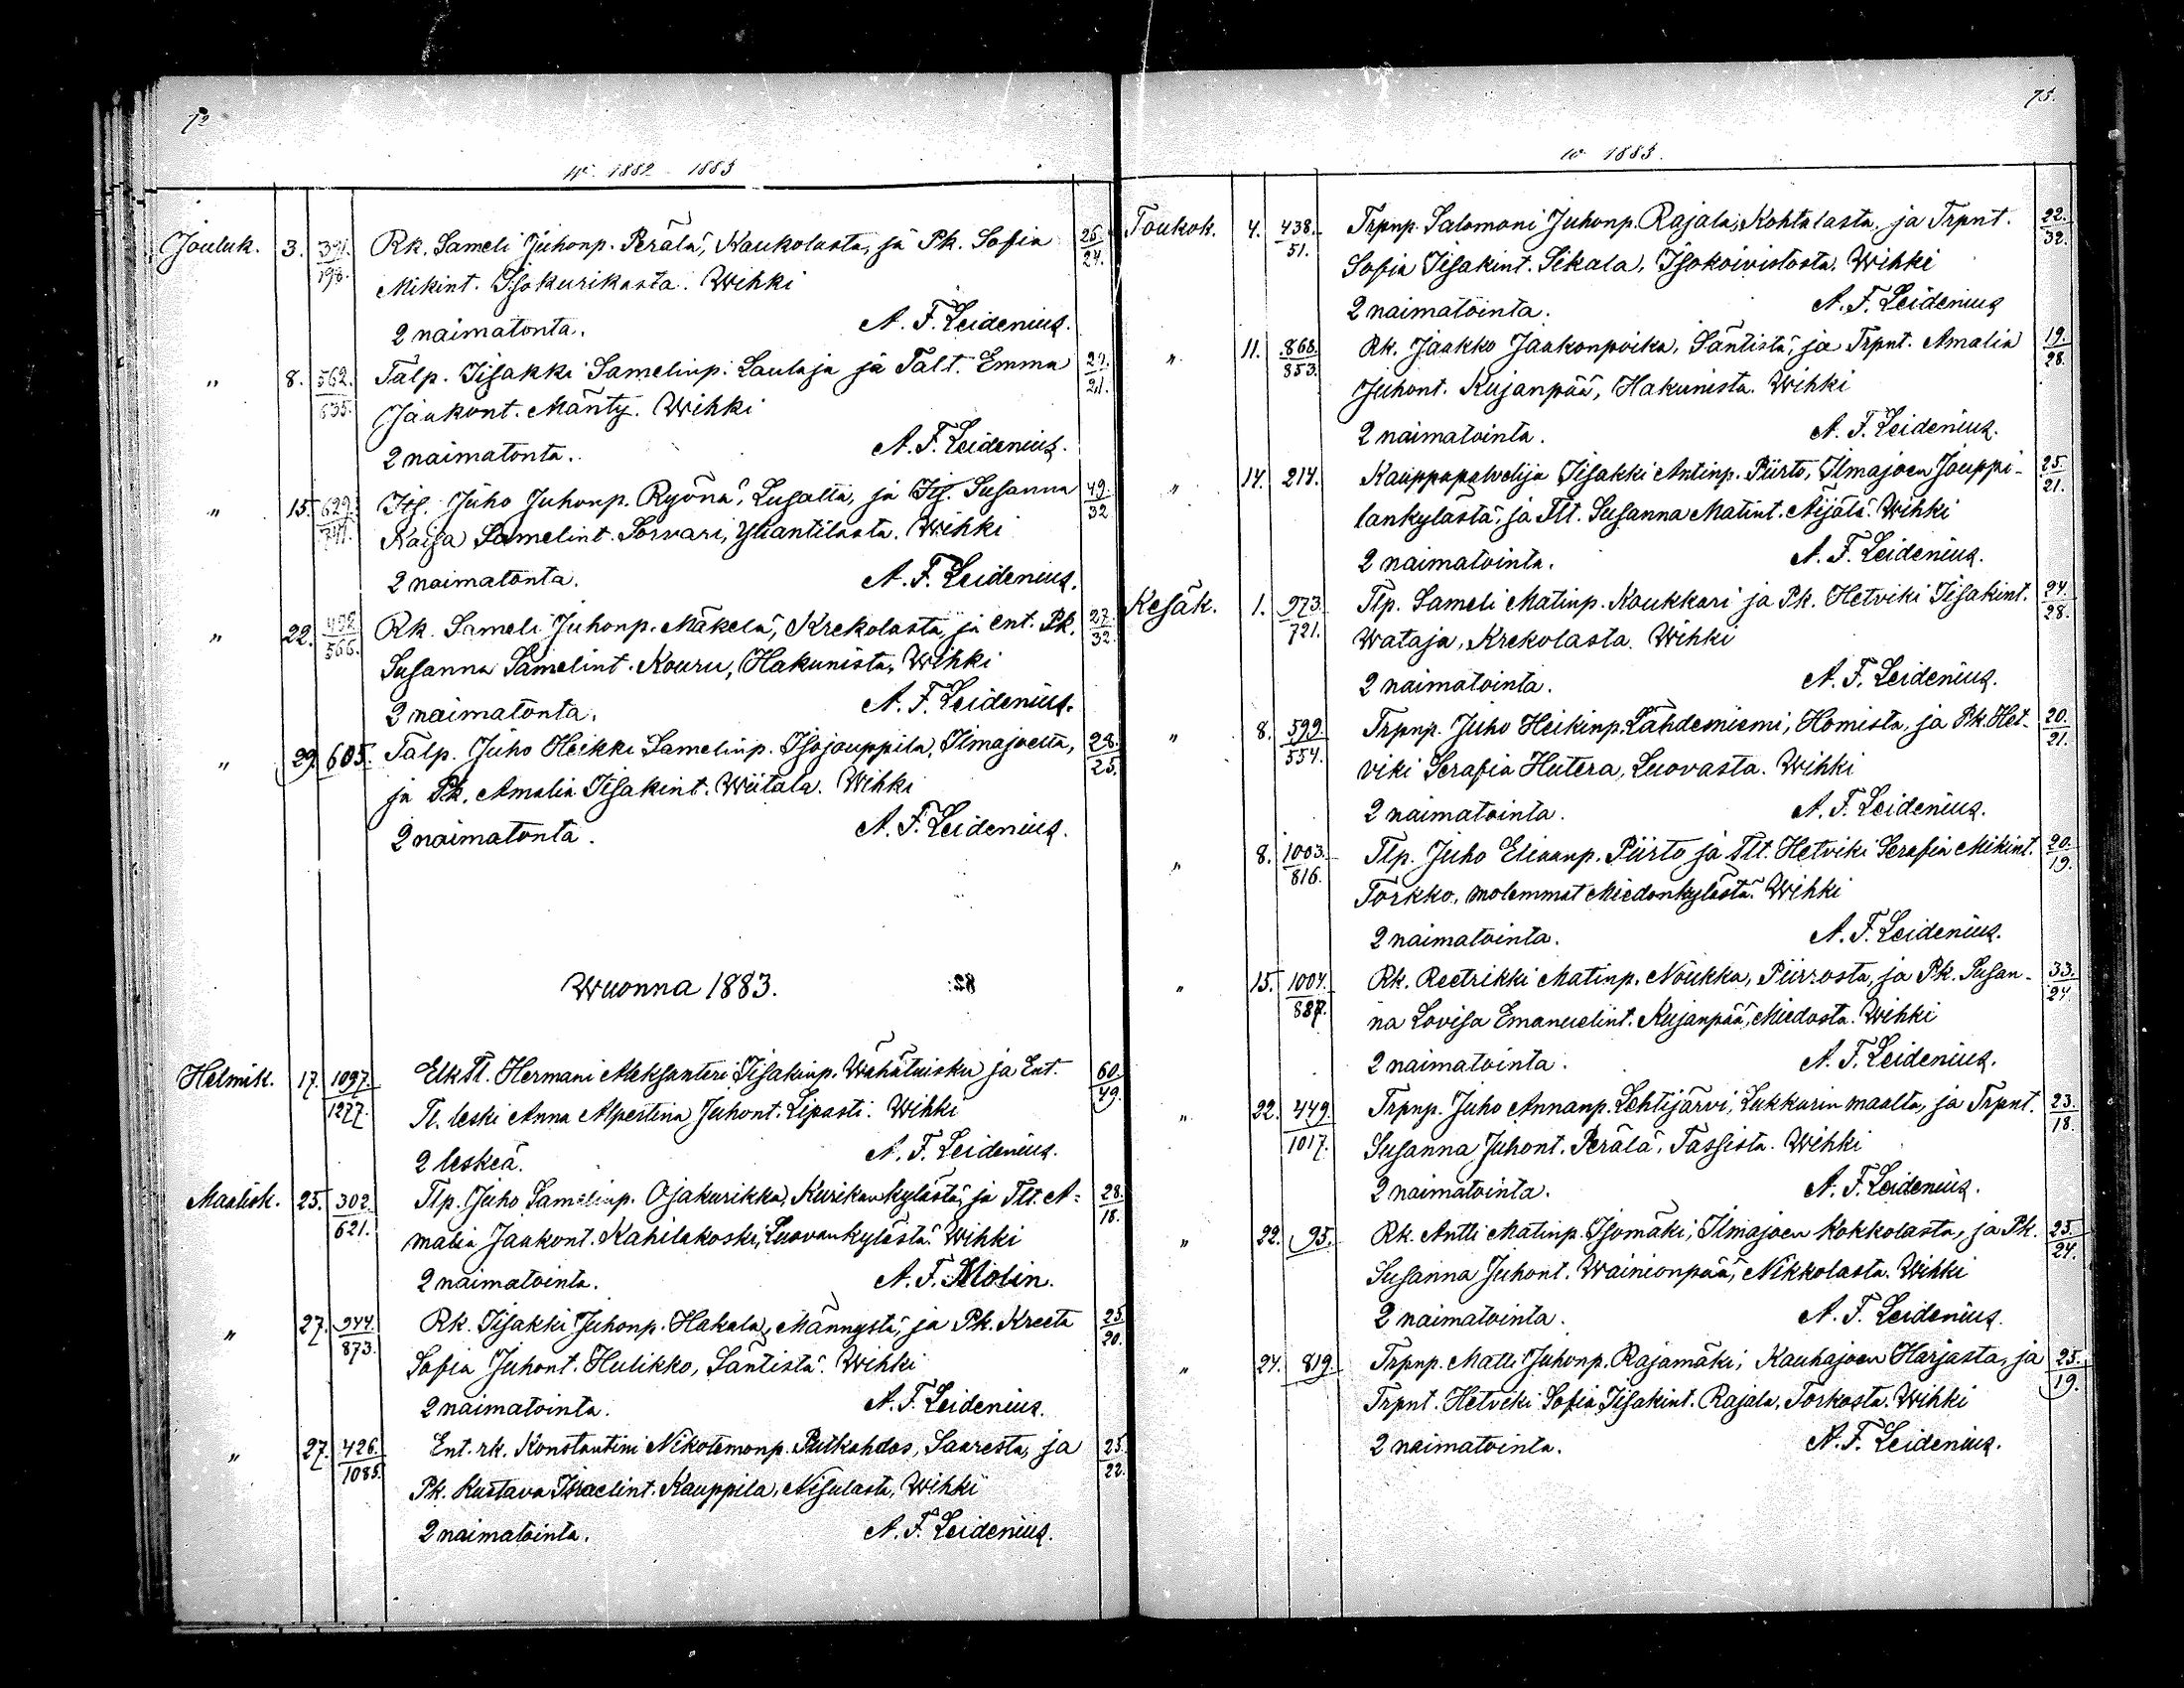 72
w. 1882 - 1883
Jouluk. 3. 391./198. Rk. Sameli Juhonp. Perälä, Kaukolasta, ja Pk. Sofia 26./24.
Mikint. Isokurikasta. Wihki
2 naimatonta. A. F. Leidenius.
" 8. 562./635. Talp. Iisakki Samelinp. Laulaja ja Talt. Emma 21.
Jaakont. Mänty. Wihki
2 naimatonta. A. F. Leidenius.
" 15. 629./741. Its. Juho Juhonp. Ryönä, Lusalta, ja Its. Susanna 49./32
Kaisa Samelint. Sorvari, Yliantilasta. Wihki
2 naimatonta. A. F. Leidenius.
" 22. 566. Rk. Sameli Juhonp. Mäkelä, Krekolasta, ja ent. Pk. 27./32.
Susanna Samelint. Kouru, Hakunista, Wihki
2 naimatonta. A. F. Leidenius.
" 29. 605. Talp. Juho Heikki Samelinp. Isojauppila, Ilmajoelta, 28./25.
ja Pk. Amalia Iisakint. Wiitala. Wihki
2 naimatonta. A. F. Leidenius.
Wuonna 1883.
Helmik. 17. 1097./1277. Elk Tl. Hermani Aleksanteri Iisakinp. Wähätuisku ja Ent. 60./49.
Tl. leski Anna Alpertina Juhont. Lipasti. Wihki
2 leskeä. A. F. Leidenius.
Maalisk. 25. 302./621. Tlp. Juho Samelinp. Ojakurikka, Kurikankylästä, ja Tlt. A= 28./18.
malia Jaakont. Kahilakoski, Luovankylästä. Wihki
2 naimatointa. A. F. Molin.
" 27. 944./873. Rk. Iisakki Juhonp. Hakala, Männystä, ja Pk. Kreeta 25./20.
Sofia Juhont. Hulikko, Säntistä. Wihki
2 naimatointa. A. F. Leidenius.
" 27. 426./1085. Ent. rk. Konstantini Nikotemonp. Putkahdos, Saaresta, ja 25./22.
Pk. Kustava Israelint. Kauppila, Nisulasta, Wihki
2 naimatointa. A. F. Leidenius.
75.
w. 1883.
Toukok. 4. 438./51. Trpnp. Salomoni Juhonp. Rajala, Kohtalasta, ja Trpnt. 22./32.
Sofia Iisakint. Sikala, Isokoivistosta. Wihki
2 naimatointa. A. F. Leidenius
" 11. 868./853. Rk. Jaakko Jaakonpoika, Säntistä, ja Trpnt. Amalia 19./28.
Juhont. Kujanpää, Hakunista. Wihki
2 naimatointa. A. F. Leidenius.
" 14. 214. Kauppapalvelija Iisakki Antinp. Piirto, Ilmajoen Jouppi- 25./21.
lankylästä, ja Tlt. Susanna Matint. Äijälä. Wihki
2 naimatointa. A. F. Leidenius.
Kesäk. 1. 973./721. Tlp. Sameli Matinp. Kaukkari ja Pk. Hetviki Iisakint. 24./28.
Wataja, Krekolasta. Wihki
2 naimatointa. A. F. Leidenius.
" 8. 599./554. Trpnp. Juho Heikinp. Lähdesniemi, Homista, ja Pk. Het- 20./21.
viki Serafia Hutera, Luovasta. Wihki
2 naimatointa. A. F. Leidenius.
" 8. 1003./816. Tlp. Juho Eliaanp. Piirto ja Tlt. Hetviki Serafia Mikint. 20./19.
Torkko, molemmat Miedonkylästä. Wihki
2 naimatointa. A. F. Leidenius.
" 15. 1004./887. Rk. Reetrikki Matinp. Noukka, Piirrosta, ja Pk. Susan- 33./24.
na Lovisa Emanuelint. Kujanpää, Miedosta. Wihki
2 naimatointa. A. F. Leidenius.
" 22. 449./1017. Trpnp. Juho Annanp. Lehtijärvi, Lukkarin maalta, ja Trpnt. 23./18.
Susanna Juhont. Perälä, Tassista. Wihki
2 naimatointa. A. F. Leidenius.
" 22. 95. Rk. Antti Matinp. Isomäki, Ilmajoen Kokkolasta, ja Pk. 25./24.
Susanna Juhont. Wainionpää, Nikkolasta. Wihki
2 naimatointa. A. F. Leidenius.
" 24. 819. Trpnp. Matti Juhonp. Rajamäki, Kauhajoen Harjasta, ja 25./19.
Trpnt. Hetviki Sofia Iisakint. Rajala, Torkosta. Wihki
2 naimatointa. A. F. Leidenius.